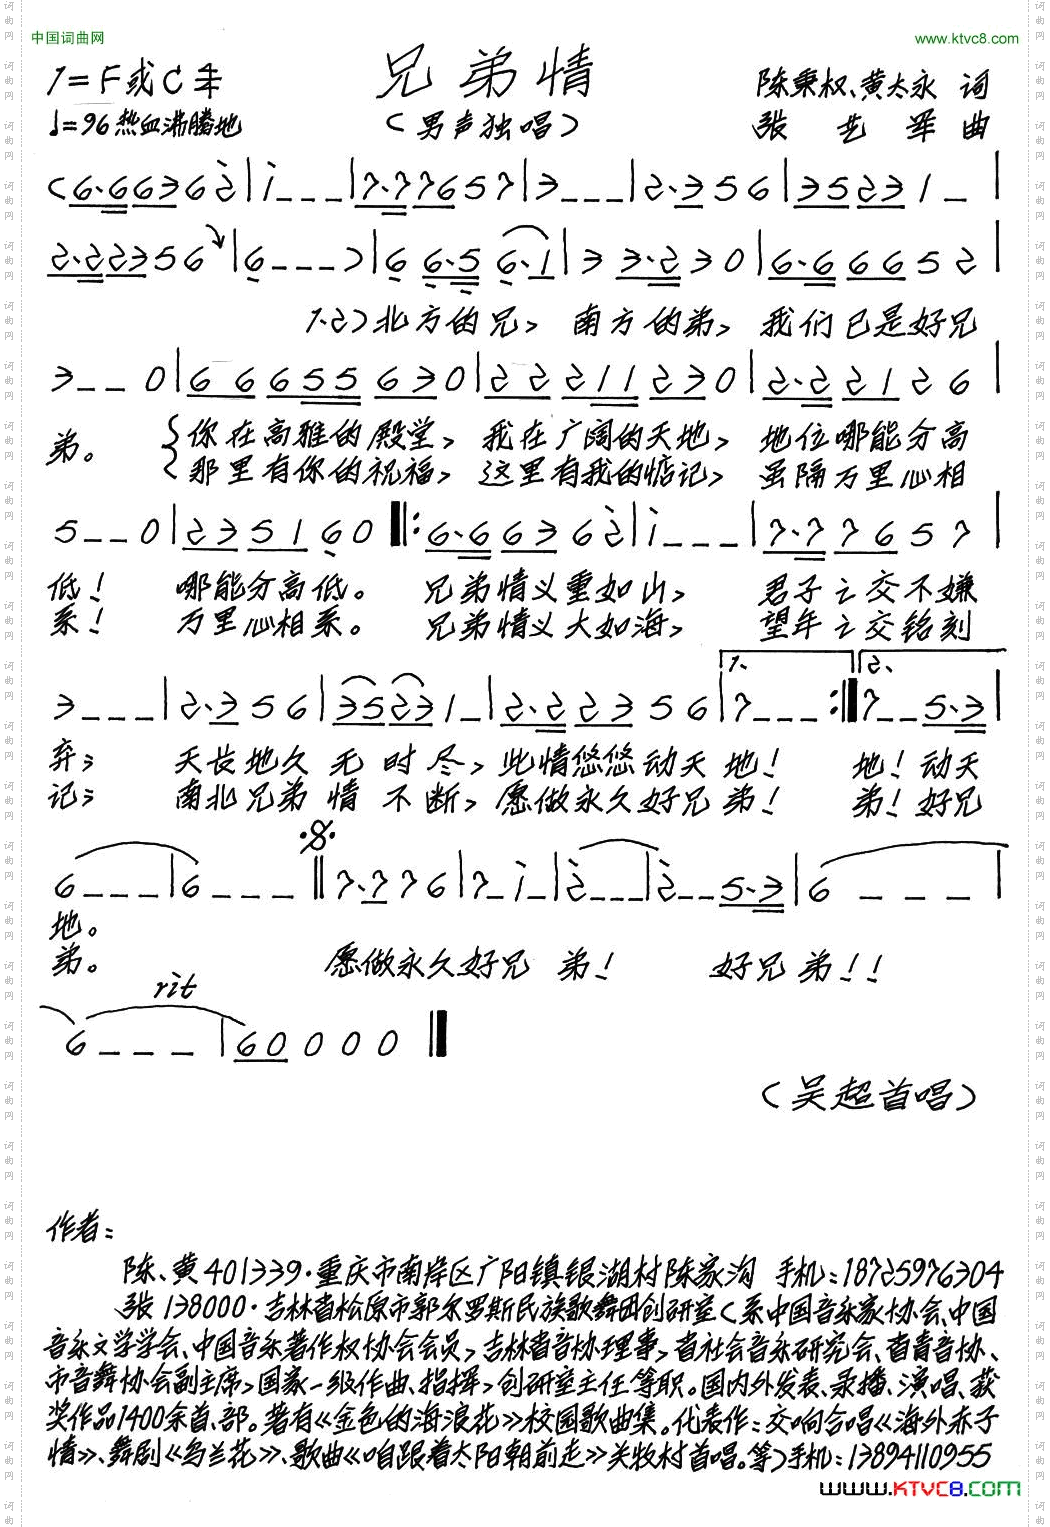 中国词曲网
www.ktvc8.com
兄弟情
1=F或C 4/4
♩=96 热血沸腾地
(男声独唱)
陈秉权、黄太永 词
张艺军 曲
(6·6 6 3 6 2̇ | 1̇ - - - | 7·7 7 6 5 7 | 3 - - - | 2·3 5 6 | 3 5 2 3 1 - |
2·2 2 3 5 6 | 6 - - - ) | 6 6·5 6·1 | 3 3·2 3 0 | 6·6 6 6 5 2 |
1、2)北方的兄, 南方的弟, 我们已是好兄
3 - - 0 | 6 6 6 5 5 6 3 0 | 2 2 2 1 1 2 3 0 | 2·2 2 1 2 6 |
弟。 你在高雅的殿堂, 我在广阔的天地, 地位哪能分高
那里有你的祝福, 这里有我的惦记, 虽隔万里心相
5 - - 0 | 2 3 5 1 6 0 ‖: 6·6 6 3 6 2̇ | 1̇ - - - | 7·7 7 6 5 7 |
低! 哪能分高低。 兄弟情义重如山, 君子之交不嫌
系! 万里心相系。 兄弟情义大如海, 望年之交铭刻
1、 2、
3 - - - | 2·3 5 6 | 3 5 2 3 1 - | 2·2 2 3 5 6 | 7 - - - :‖ 7 - - 5·3 |
弃; 天长地久无时尽, 此情悠悠动天地! 地! 动天
记; 南北兄弟情不断, 愿做永久好兄弟! 弟! 好兄
6 - - - | 6 - - - ‖ 7·7 7 6 | 7 - 1̇ - | 2̇ - - - | 2̇ - - 5·3 | 6 - - - |
地。
弟。 愿做永久好兄弟! 好兄弟!!
rit
6 - - - | 6 0 0 0 0 ‖
(吴超首唱)
作者:
陈、黄401339·重庆市南岸区广阳镇银湖村陈家沟 手机:18725976304
张138000·吉林省松原市郭尔罗斯民族歌舞团创研室(系中国音乐家协会、中国
音乐文学学会、中国音乐著作权协会会员,吉林省音协理事,省社会音乐研究会、省青音协、
市音舞协会副主席,国家一级作曲、指挥,创研室主任等职。国内外发表、录播、演唱、获
奖作品1400余首、部。著有《金色的海浪花》校园歌曲集。代表作:交响合唱《海外赤子
情》、舞剧《乌兰花》、歌曲《咱跟着太阳朝前走》关牧村首唱。等)手机:13894110955
www.KTVC8.com